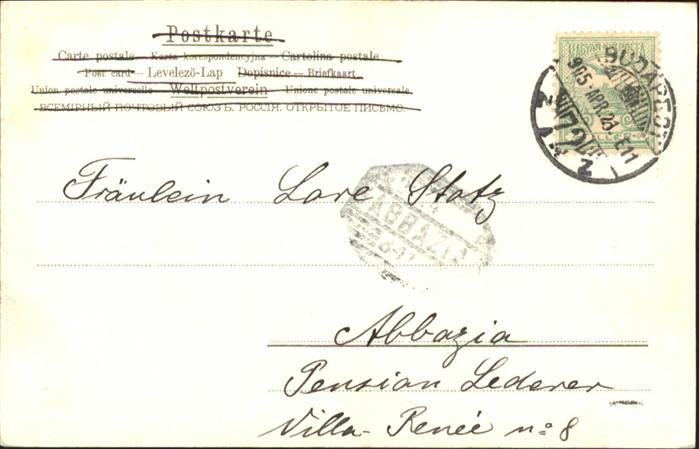 Postkarte
Carte postale — Karta korespondencyjna — Cartolina postale
Post card — Levelező-Lap Dopisnice — Briefkaart
Union postale universelle Weltpostverein Unione postale universale
ВСЕМІРНЫЙ ПОЧТОВЫЙ СОЮЗЪ. РОССІЯ. ОТКРЫТОЕ ПИСЬМО.
MAGYAR KIR. POSTA
BUDAPEST
905 APR. 23
72
Fräulein Lore Statz
ABBAZIA
Abbazia
Pension Lederer
Villa Renée no 8